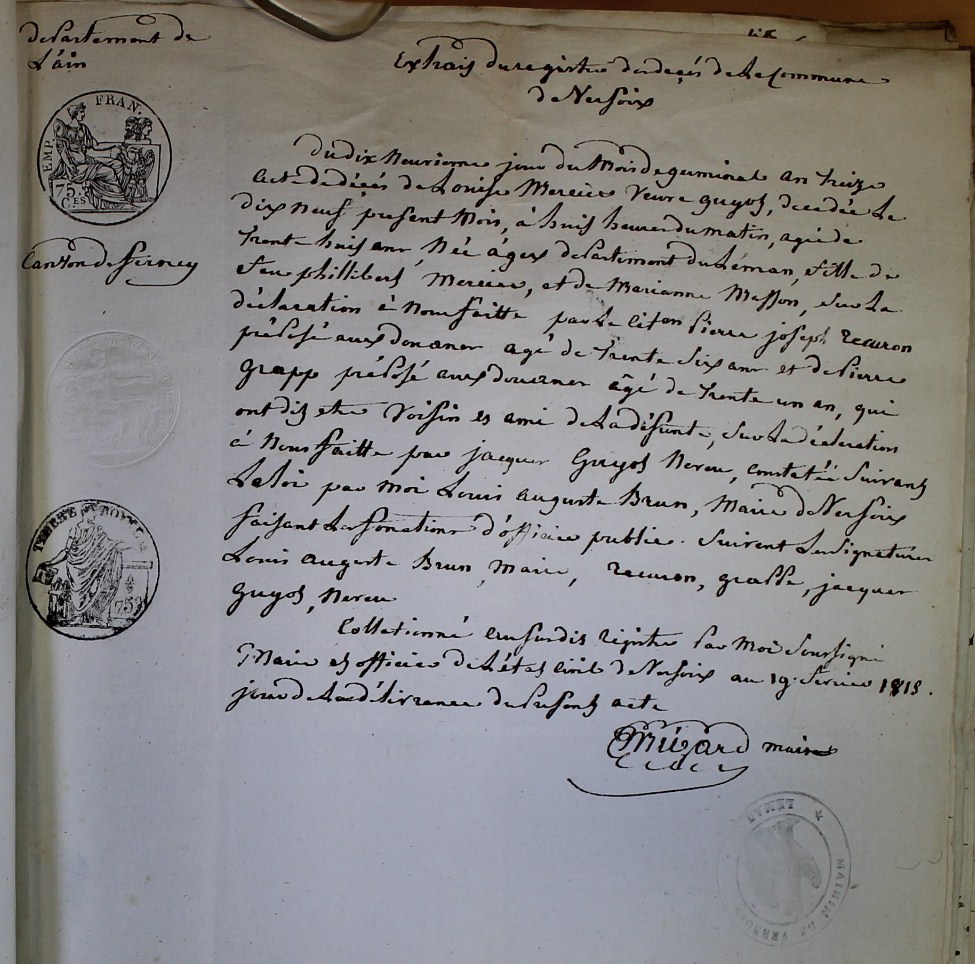 departement de
L'ain
EMP. FRAN.
75.
C.ES
Canton de ferney
TIMBRE ROYAL
75
Extrais du registre des deçés de la Commune
de Versoix
Du dix neuvieme jour du Mois de germinal an treize
acte de décés de Louise Mercier Veuve guyot, decedée le
dix neuf present Mois, à huit heures du matin, agée de
trente huit ans, Née à gex departement du Léman, fille de
feu phillibert Mercier, et de Marianne Masson, sur la
déclaration à nous faitte par le citen Pierre joseph recuron
préposé aux douanes agé de trente six ans et de Pierre
grapp préposé aux douanes âgé de trente un an, qui
ont dit etre Voisin et ami de la défunte, sur la déclaration
à nous faitte par jacques Guyot Neveu, constatée suivant
La loi par moi Louis auguste Brun, Maire de Versoix
faisant les fonctions d'officier public. Suivent les signatures
Louis auguste Brun, maire, recuron, grasse, jacques
guyot, Neveu
Collationné au susdit régistre par moi soussigné
Maire et officier de l'état civil de Versoix au 19. fevrier 1815.
jour de la délivrance du présent acte
Mégard maire
MAIRIE DE VERSOIX